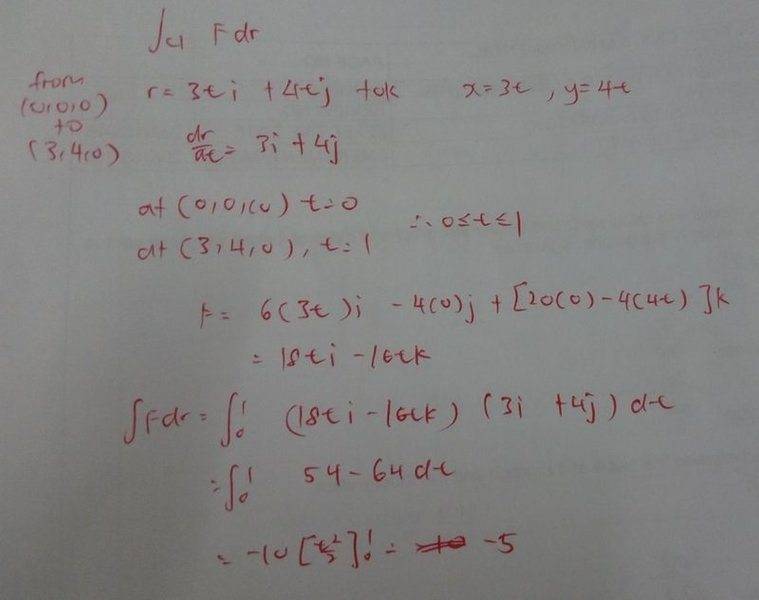 ∫c1 F dr
from (0,0,0) to (3,4,0)
r = 3t i + 4t j + 0k   x = 3t , y = 4t
dr/dt = 3i + 4j
at (0,0,0) t = 0
at (3,4,0), t = 1   ∴ 0 ≤ t ≤ 1
F = 6(3t)i - 4(0)j + [20(0) - 4(4t)]k
= 18t i - 16t k
∫F dr = ∫₀¹ (18t i - 16t k) (3i + 4j) dt
= ∫₀¹ 54 - 64 dt
= -10 [t²/2]₀¹ = -5